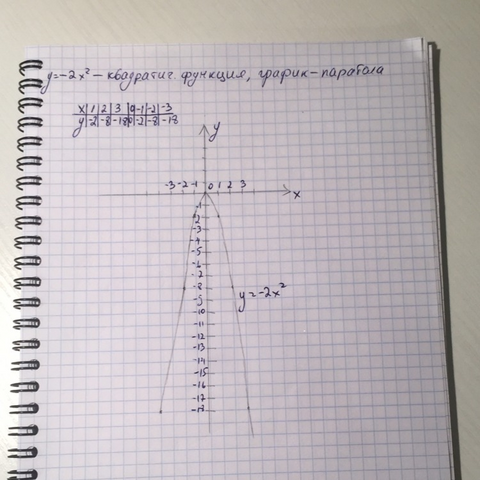 y=-2x² - квадратич. функция, график - парабола
x|1|2|3|0|-1|-2|-3
y|-2|-8|-18|0|-2|-8|-18
y
-3 -2 -1 0 1 2 3
x
-1
-2
-3
-4
-5
-6
-7
-8
-9
-10
-11
-12
-13
-14
-15
-16
-17
-18
y=-2x²